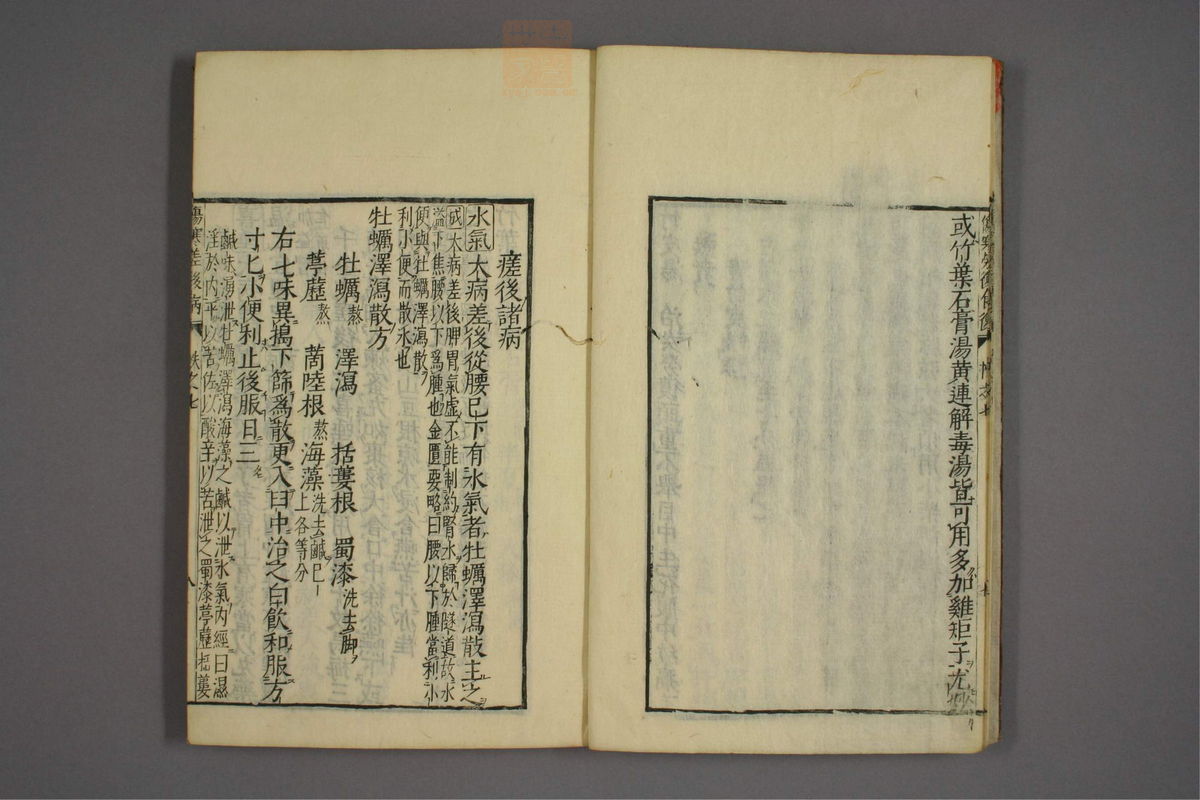 或竹葉石膏湯黄連解毒湯皆可用多加雞矩子尤妙
瘥後諸病
水氣 大病差後從腰已下有水氣者牡蠣澤瀉散主之
成 大病差後脾胃氣虛不能制約腎水歸於隧道故水
溢下焦腰以下爲腫也金匱要略曰腰以下腫當利小
便與牡蠣澤瀉散
利小便而散水也
牡蠣澤瀉散方
牡蠣熬 澤瀉 括蔞根 蜀漆洗去脚
葶藶熬 蔏陸根熬 海藻洗去鹹已上各等分
右七味異搗下篩爲散更入臼中治之白飲和服方
寸匕小便利止後服日三
鹹味涌泄牡蠣澤瀉海藻之鹹以泄水氣內經曰濕
淫於內平以苦佐以酸辛以苦泄之蜀漆葶藶括蔞
傷寒差後病 之七